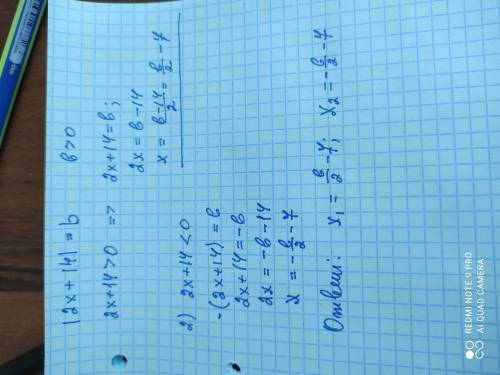 |2x+14| = b    b>0
2x+14>0 => 2x+14=b;
2x = b-14
x = \frac{b-14}{2} = \frac{b}{2} - 7
2) 2x+14<0
-(2x+14) = b
2x+14=-b
2x = -b-14
x = -\frac{b}{2} - 7
Ответ: x₁ = \frac{b}{2} - 7; x₂ = -\frac{b}{2} - 7
REDMI NOTE 9 PRO
AI QUAD CAMERA